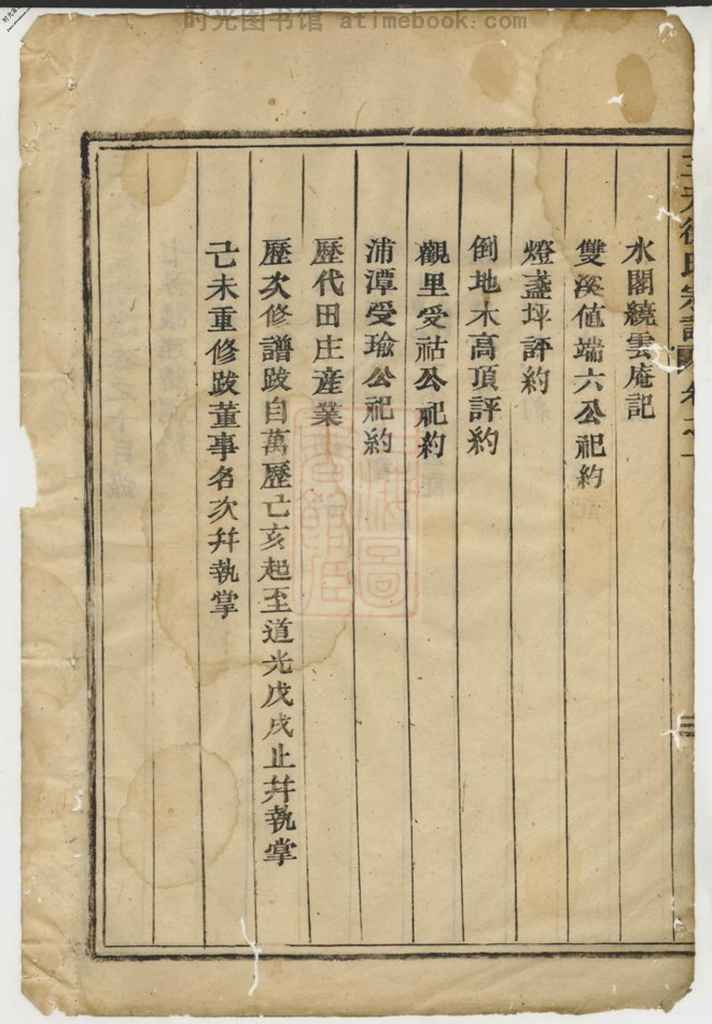 时光图书馆 atimebook.com
水閣繞雲庵記
雙溪值端六公祀約
燈盞坪評約
倒地木高頂評約
觀里受祜公祀約
浦潭受瑜公祀約
歷代田庄産業
歷次修譜跋自萬歷亡亥起至道光戊戌止幷執掌
己未重修跋董事名次幷執掌